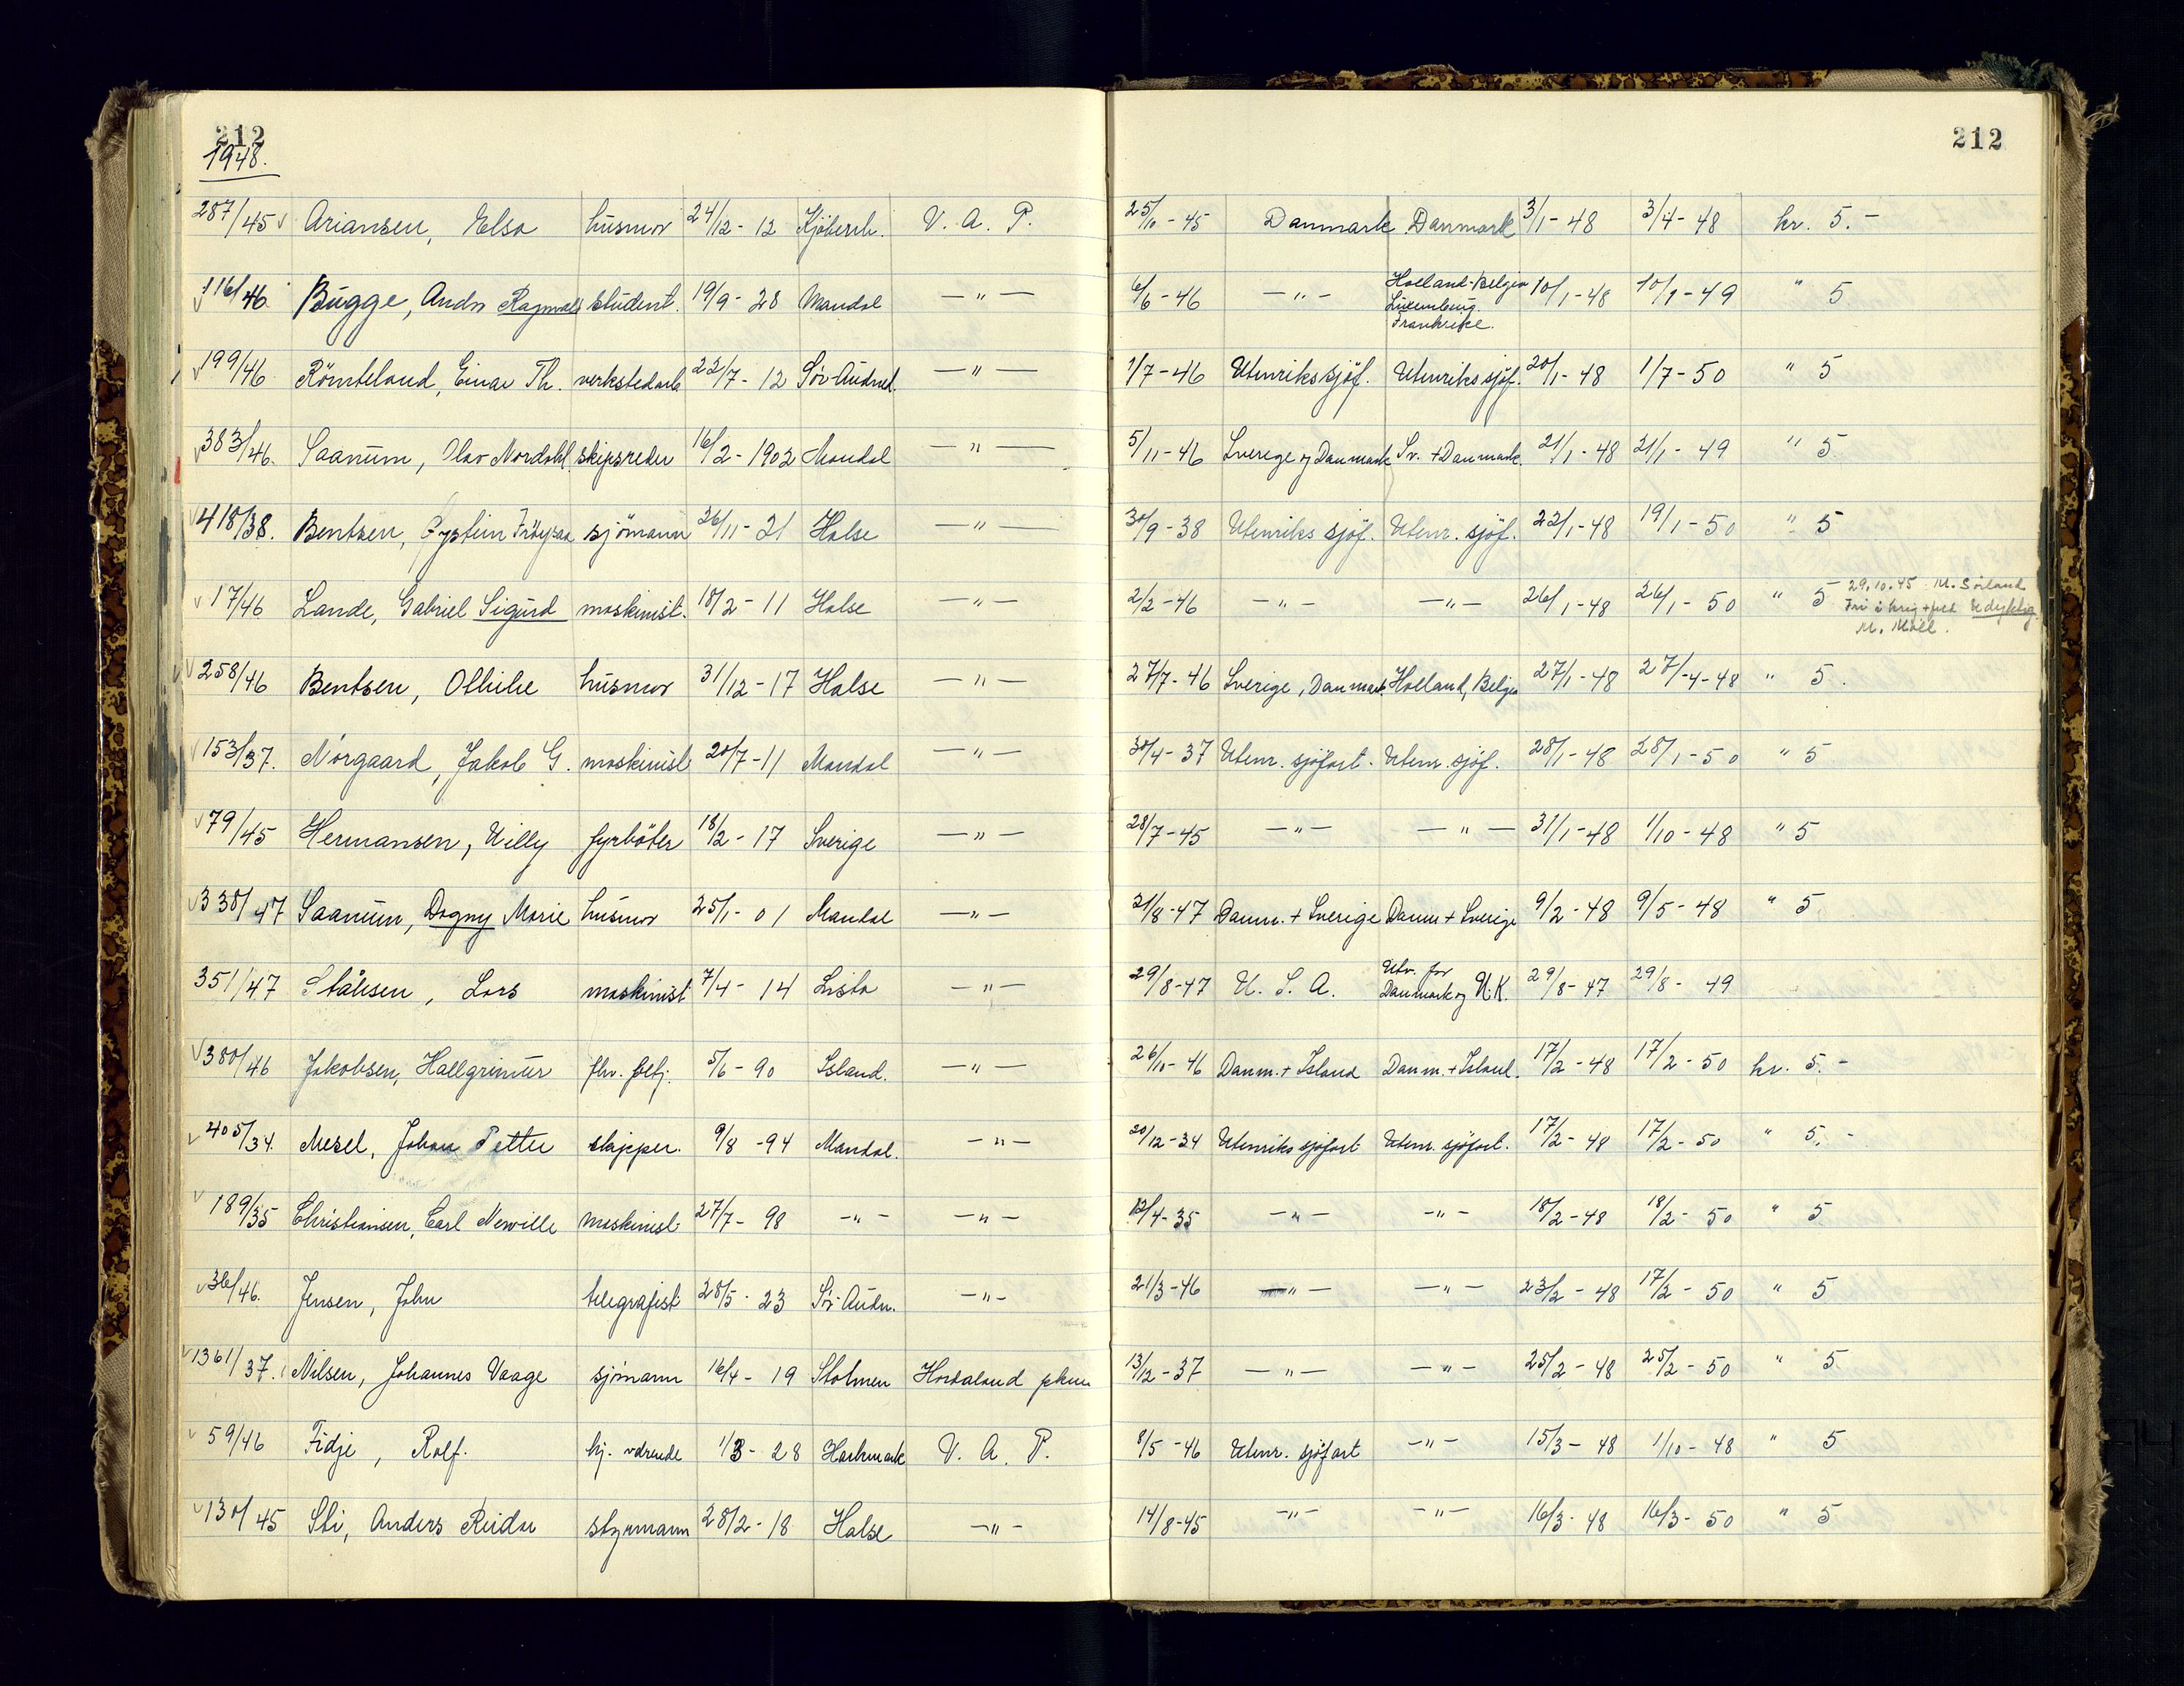 212 212
1948.
287/45 Ariansen, Elsa husmor 24/12 - 12 Kjöbenh. V. A. P. 25/10 - 45 Danmark Danmark 3/1 - 48 3/4 - 48 kr. 5.-
116/46. Bugge, Anders student. 19/9 - 28 Mandal — " — 6/6 - 46 — " — Holland-Belgia 10/1 - 48 10/1 - 49 " 5
Luxemburg.
Frankrike.
199/46 Römteland, Einar Th. verkstedarb 22/7 - 12 Sör-Audned. — " — 1/7 - 46 Utenriks sjöf. Utenriks sjöf. 20/1 - 48 1/7 - 50 " 5
383/46. Saanum, Olav Nordahl skipsreder 16/2 - 1902 Mandal — " — 5/11 - 46 Sverige og Danmark Sv. + Danmark. 21/1 - 48 21/1 - 49 " 5
418/38. Bentsen, Eystein sjömann 26/11 - 21 Halse — " — 30/9 - 38 Utenriks sjöf. Utenr. sjöf. 22/1 - 48 19/1 - 50 " 5
17/46 Lande, Gabriel Sigurd maskinist. 18/2 - 11 Halse — " — 2/2 - 46 — " — — " — 26/1 - 48 26/1 - 50 " 5 29.10.45 M. Sörland
Udyktig
258/46 Bentsen, Othilie husmor 31/12 - 17 Halse — " — 27/7 - 46 Sverige, Danmark Holland, Belgia 27/1 - 48 27/-4-48 " 5.
153/37. Nörgaard, Jakob G. maskinist 20/7 - 11 Mandal — " — 30/4 - 37 Utenr. sjöfart. Utenr. sjöf. 28/1 - 48 28/1 - 50 " 5
79/45 Hermansen, Willy fyrböter 18/2 - 17 Sverige — " — 28/7 - 45 — " — — " — 31/1 - 48 1/10 - 48 " 5
330/47 Saanum, Dagny Marie husmor 25/1 - 01 Mandal — " — 21/8 - 47 Danm. + Sverige Danm + Sverige 9/2 - 48 9/5 - 48 " 5
351/47 Stålesen, Lars maskinist 7/4 - 14 Lista — " — 29/8 - 47 U. S. A. Utv. for 29/8 - 47 29/8 - 49
Danmark og U.K.
380/46 Jakobsen, Hallgrimur fhv. 5/6 - 90 Island. — " — 26/10 - 46 Danm. + Island Danm. + Island. 17/2 - 48 17/2 - 50 kr. 5.-
405/34. Mesel, Johan Petter skipper. 9/8 - 94 Mandal. — " — 20/12 - 34 Utenriks sjöfart Utenr. sjöfart. 17/2 - 48 17/2 - 50 " 5.-
189/35 Christiansen, Carl Newille maskinist 27/7 - 98 — " — — " — 12/4 - 35 — " — — " — 18/2 - 48 18/2 - 50 " 5
36/46. Jensen, John telegrafist 28/5 - 23 Sör-Audn. — " — 21/3 - 46 — " — — " — 23/2 - 48 17/2 - 50 " 5
1361/37. Nilsen, Johannes Vaage sjömann 16/4 - 19 Stolmen Hordaland pkm 13/12 - 37 — " — — " — 25/2 - 48 25/2 - 50 " 5
59/46 Fidje, Rolf. hj. værende 1/3 - 28 Harkmark V. A. P. 8/5 - 46 Utenr. sjöfart — " — 15/3 - 48 1/10 - 48 " 5
130/45 Sti, Anders Reidar styrmann 28/2 - 18 Halse — " — 14/8 - 45 — " — — " — 16/3 - 48 16/3 - 50 " 5